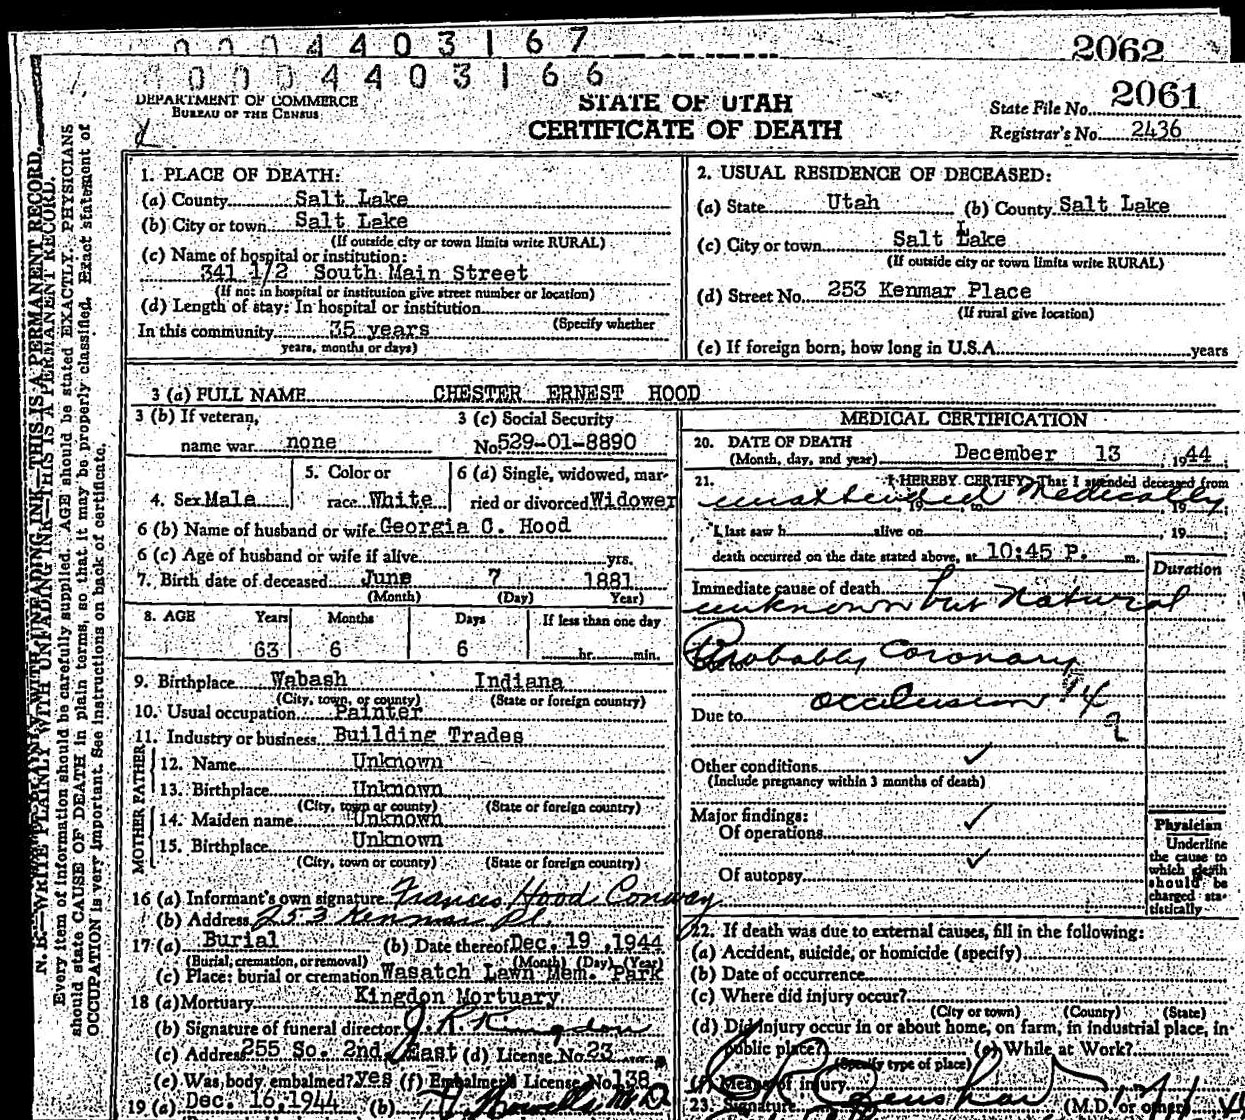 0004403167
2062
0004403166
DEPARTMENT OF COMMERCE
BUREAU OF THE CENSUS
STATE OF UTAH
CERTIFICATE OF DEATH
State File No. 2061
Registrar's No. 2436
N. B.—WRITE PLAINLY WITH UNFADING INK—THIS IS A PERMANENT RECORD.
Every item of information should be carefully supplied. AGE should be stated EXACTLY. PHYSICIANS
should state CAUSE OF DEATH in plain terms, so that it may be properly classified. Exact statement of
OCCUPATION is very important. See Instructions on back of certificate.
1. PLACE OF DEATH:
(a) County Salt Lake
(b) City or town Salt Lake
(If outside city or town limits write RURAL)
(c) Name of hospital or institution:
341 1/2 South Main Street
(If not in hospital or institution give street number or location)
(d) Length of stay: In hospital or institution
(Specify whether
In this community 35 years
years, months or days)
2. USUAL RESIDENCE OF DECEASED:
(a) State Utah (b) County Salt Lake
(c) City or town Salt Lake
(If outside city or town limits write RURAL)
(d) Street No. 253 Kenmar Place
(If rural give location)
(e) If foreign born, how long in U.S.A. years
3 (a) FULL NAME CHESTER ERNEST HOOD
3 (b) If veteran,
name war none
3 (c) Social Security
No. 529-01-8890
4. Sex Male
5. Color or
race White
6 (a) Single, widowed, mar-
ried or divorced Widower
6 (b) Name of husband or wife Georgia C. Hood
6 (c) Age of husband or wife if alive yrs.
7. Birth date of deceased June 7 1881
(Month) (Day) Year)
8. AGE Years Months Days If less than one day
63 6 6 hr. min.
9. Birthplace Wabash Indiana
(City, town, or county) (State or foreign country)
10. Usual occupation Painter
11. Industry or business Building Trades
FATHER
12. Name Unknown
13. Birthplace Unknown
(City, town or county) (State or foreign country)
MOTHER
14. Maiden name Unknown
15. Birthplace Unknown
(City, town or county) (State or foreign country)
16 (a) Informant's own signature Frances Hood Conway
(b) Address 253 Kenmar Pl.
17 (a) Burial (b) Date thereof Dec. 19, 1944
(Burial, cremation, or removal) (Month) (Day) (Year)
(c) Place: burial or cremation Wasatch Lawn Mem. Park
18 (a) Mortuary Kingdon Mortuary
(b) Signature of funeral director J. R. Kingdon
(c) Address 255 So. 2nd East (d) License No. 23
(e) Was body embalmed? yes (f) Embalmer's License No. 138
19 (a) Dec. 16, 1944 (b) M D
MEDICAL CERTIFICATION
20. DATE OF DEATH
(Month, day, and year) December 13, 1944
21. I HEREBY CERTIFY, That I attended deceased from
unattended Medically
19 to 19
I last saw h alive on 19
death occurred on the date stated above, at 10:45 P. m.
Duration
Immediate cause of death
unknown but Natural
Probably Coronary
occlusion 94
Due to
Other conditions ✓
(Include pregnancy within 3 months of death)
Major findings:
Of operations ✓
Of autopsy ✓
Physician
Underline
the cause to
which death
should be
charged sta-
tistically
22. If death was due to external causes, fill in the following:
(a) Accident, suicide, or homicide (specify)
(b) Date of occurrence
(c) Where did injury occur?
(City or town) (County) (State)
(d) Did injury occur in or about home, on farm, in industrial place, in
public place? (e) While at Work?
(Specify type of place)
(f) Means of injury
23. Signature (M.D. or other)